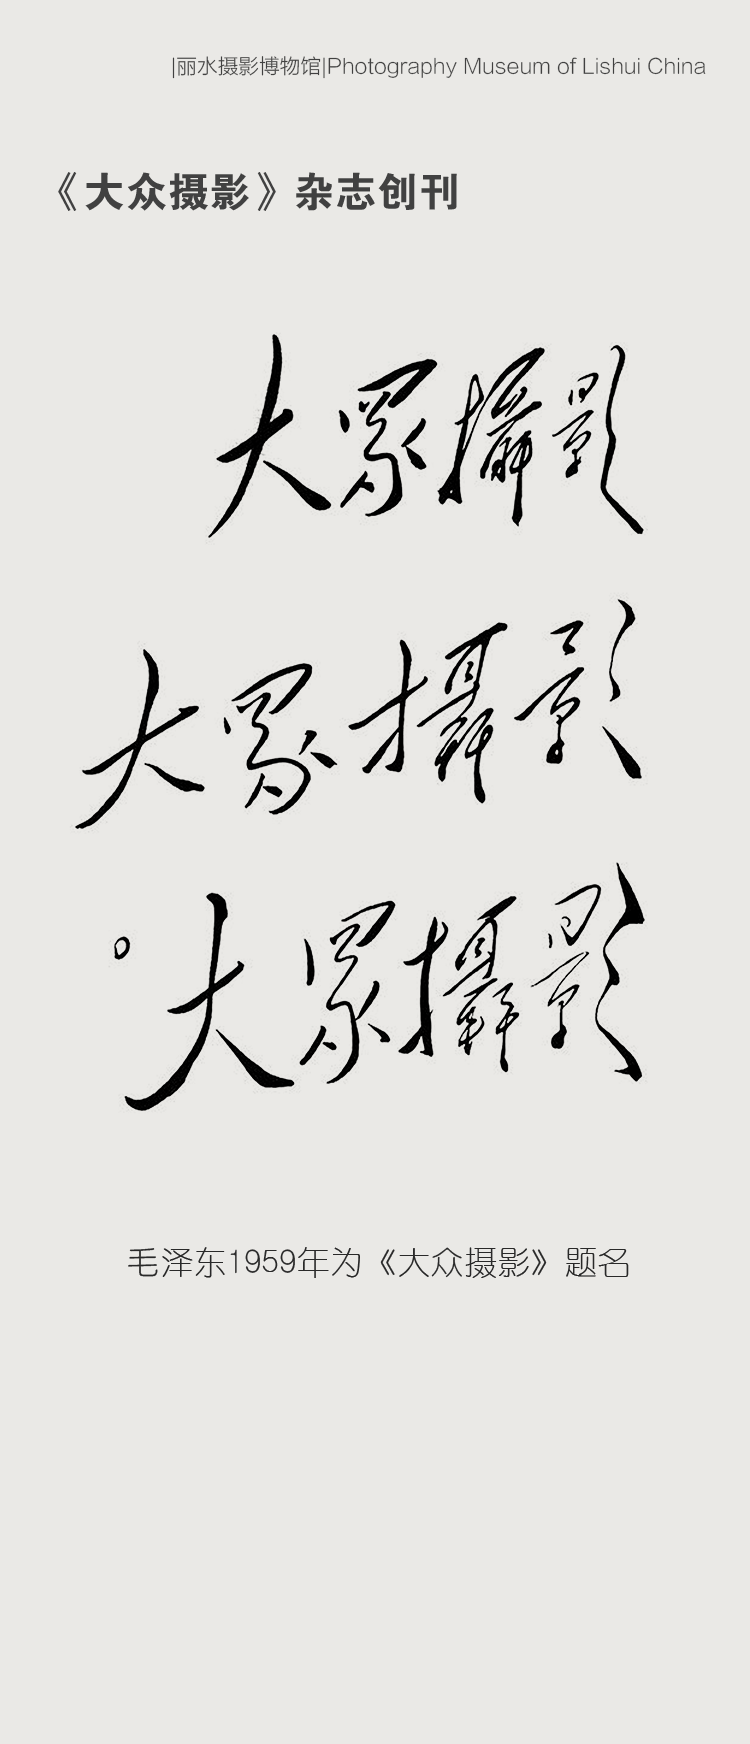 |丽水摄影博物馆|Photography Museum of Lishui China
《大众摄影》杂志创刊
大眾攝影
大眾攝影
大眾攝影
毛泽东1959年为《大众摄影》题名